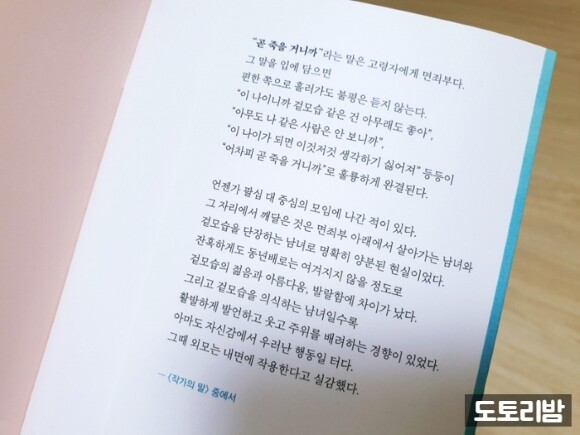 “곧 죽을 거니까”라는 말은 고령자에게 면죄부다.
그 말을 입에 담으면
편한 쪽으로 흘러가도 불평은 듣지 않는다.
“이 나이니까 겉모습 같은 건 아무래도 좋아”,
“아무도 나 같은 사람은 안 보니까”,
“이 나이가 되면 이것저것 생각하기 싫어져” 등등이
“어차피 곧 죽을 거니까”로 훌륭하게 완결된다.
언젠가 팔십 대 중심의 모임에 나간 적이 있다.
그 자리에서 깨달은 것은 면죄부 아래에서 살아가는 남녀와
겉모습을 단장하는 남녀로 명확히 양분된 현실이었다.
잔혹하게도 동년배로는 여겨지지 않을 정도로
겉모습의 젊음과 아름다움, 발랄함에 차이가 났다.
그리고 겉모습을 의식하는 남녀일수록
활발하게 발언하고 웃고 주위를 배려하는 경향이 있었다.
아마도 자신감에서 우러난 행동일 터다.
그때 외모는 내면에 작용한다고 실감했다.
— 〈작가의 말〉 중에서
도토리밤